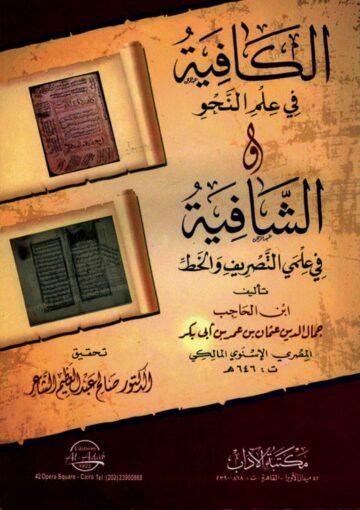 الكافية
في علم النحو
و
الشافية
في علمي التصريف والخط
تأليف
ابن الحاجب
جمال الدين عثمان بن عمر بن أبي بكر
المصري الإسنوي المالكي
ت : ٦٤٦ هـ
تحقيق
الدكتور صالح عبد العظيم الشاعر
مكتبة الآداب
٤٢ ميدان الأوبرا - القاهرة - ت : ٢٣٩٠٠٨٦٨
Editions
Al-Adab
1923
42 Opera Square - Cairo Tel: (202) 23900868